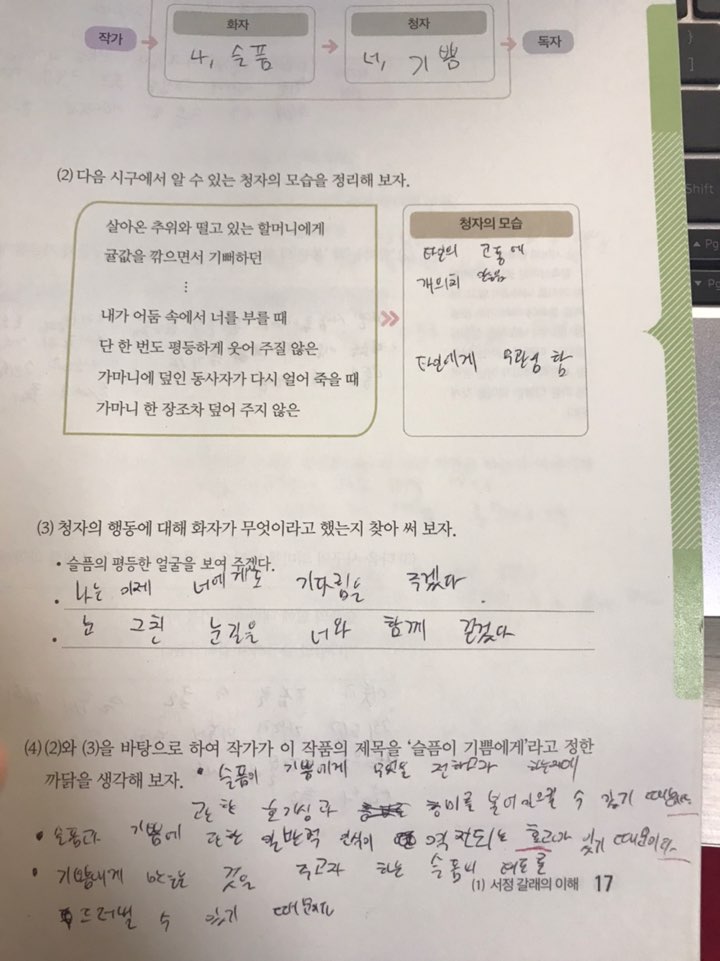 화자
청자
작가
나, 슬픔
너, 기쁨
독자
(2) 다음 시구에서 알 수 있는 청자의 모습을 정리해 보자.
살아온 추위와 떨고 있는 할머니에게
귤값을 깎으면서 기뻐하던
⋮
내가 어둠 속에서 너를 부를 때
단 한 번도 평등하게 웃어 주질 않은
가마니에 덮인 동사자가 다시 얼어 죽을 때
가마니 한 장조차 덮어 주지 않은
청자의 모습
타인의 고통에
개의치 않음
타인에게 무관심 함
(3) 청자의 행동에 대해 화자가 무엇이라고 했는지 찾아 써 보자.
• 슬픔의 평등한 얼굴을 보여 주겠다.
• 나는 이제 너에게도 기다림을 주겠다.
• 눈 그친 눈길을 너와 함께 걷겠다
(4) (2)와 (3)을 바탕으로 하여 작가가 이 작품의 제목을 '슬픔이 기쁨에게'라고 정한
까닭을 생각해 보자. • 슬픔이 기쁨에게 무엇을 전하고자 하는지에
관한 호기심과 흥미를 불어 일으킬 수 있기 때문이다.
• 슬픔과 기쁨에 관한 일반적 인식이 역전되는 효과가 있기 때문이다.
• 기쁨에게 주고자 하는 슬픔의 태도를
드러낼 수 있기 때문이다
(1) 서정 갈래의 이해 17
}
]
Shift
Pg
Pg